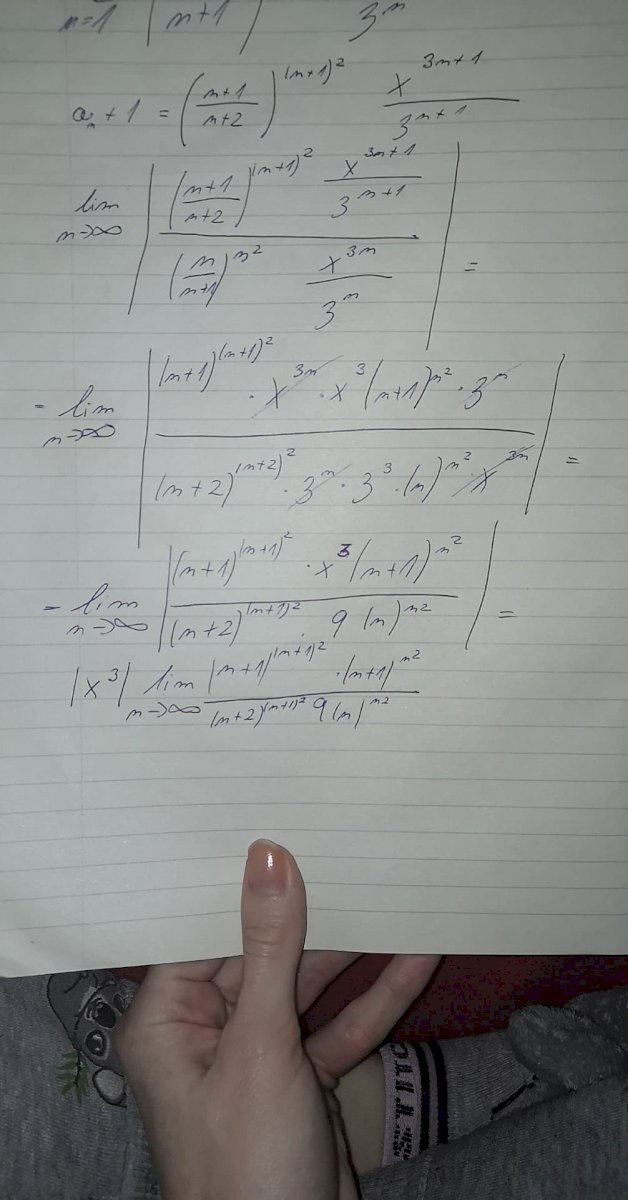 n=1 | n+1 | 3^n
a_n + 1 = ((n+1)/(n+2))^((n+1)^2) x^(3n+1)/3^(n+1)
lim n→∞ | ((n+1)/(n+2))^((n+1)^2) x^(3n+1)/3^(n+1) / (n/(n+1))^(n^2) x^(3n)/3^n | =
= lim n→∞ | (n+1)^((n+1)^2) · x^(3n) · x^3 (n+1)^(n^2) · 3^n / (n+2)^((n+2)^2) · 3^n · 3^3 · (n)^(n^2) · x^(3n) | =
= lim n→∞ | (n+1)^((n+1)^2) · x^3 (n+1)^(n^2) / (n+2)^((n+1)^2) · 9 (n)^(n^2) | =
|x^3| lim n→∞ (n+1)^((n+1)^2) · (n+1)^(n^2) / (n+2)^((n+1)^2) 9 (n)^(n^2)